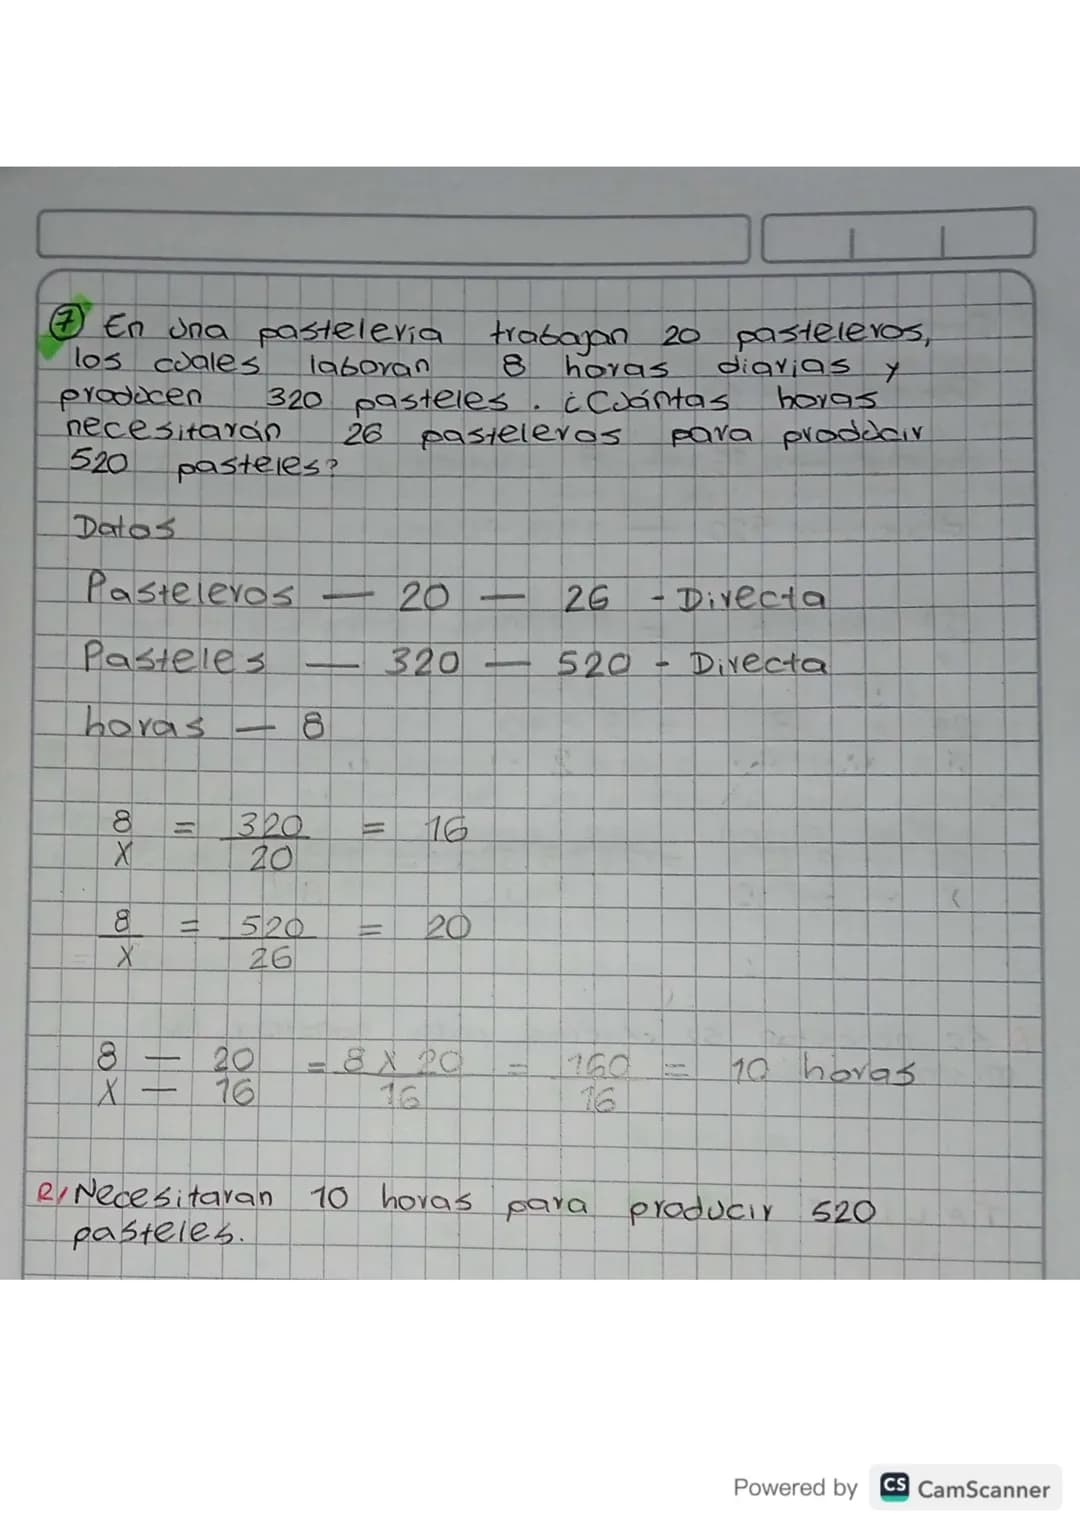 7 En una pastelería trabajan 20 pasteleros,
los cuales laboran 8 horas diarias y
producen 320 pasteles. ¿Cuántas horas
necesitarán 26 pasteleros para producir
520 pasteles?
Datos
Pasteleros — 20 — 26 - Directa
Pasteles — 320 — 520 - Directa
horas — 8
8 = 320 = 16
X 20
8 = 520 = 20
X 26
8 — 20 = 8 X 20 = 160 = 10 horas
X — 16 16 16
R/ Necesitaran 10 horas para producir 520
pasteles.
Powered by CS CamScanner